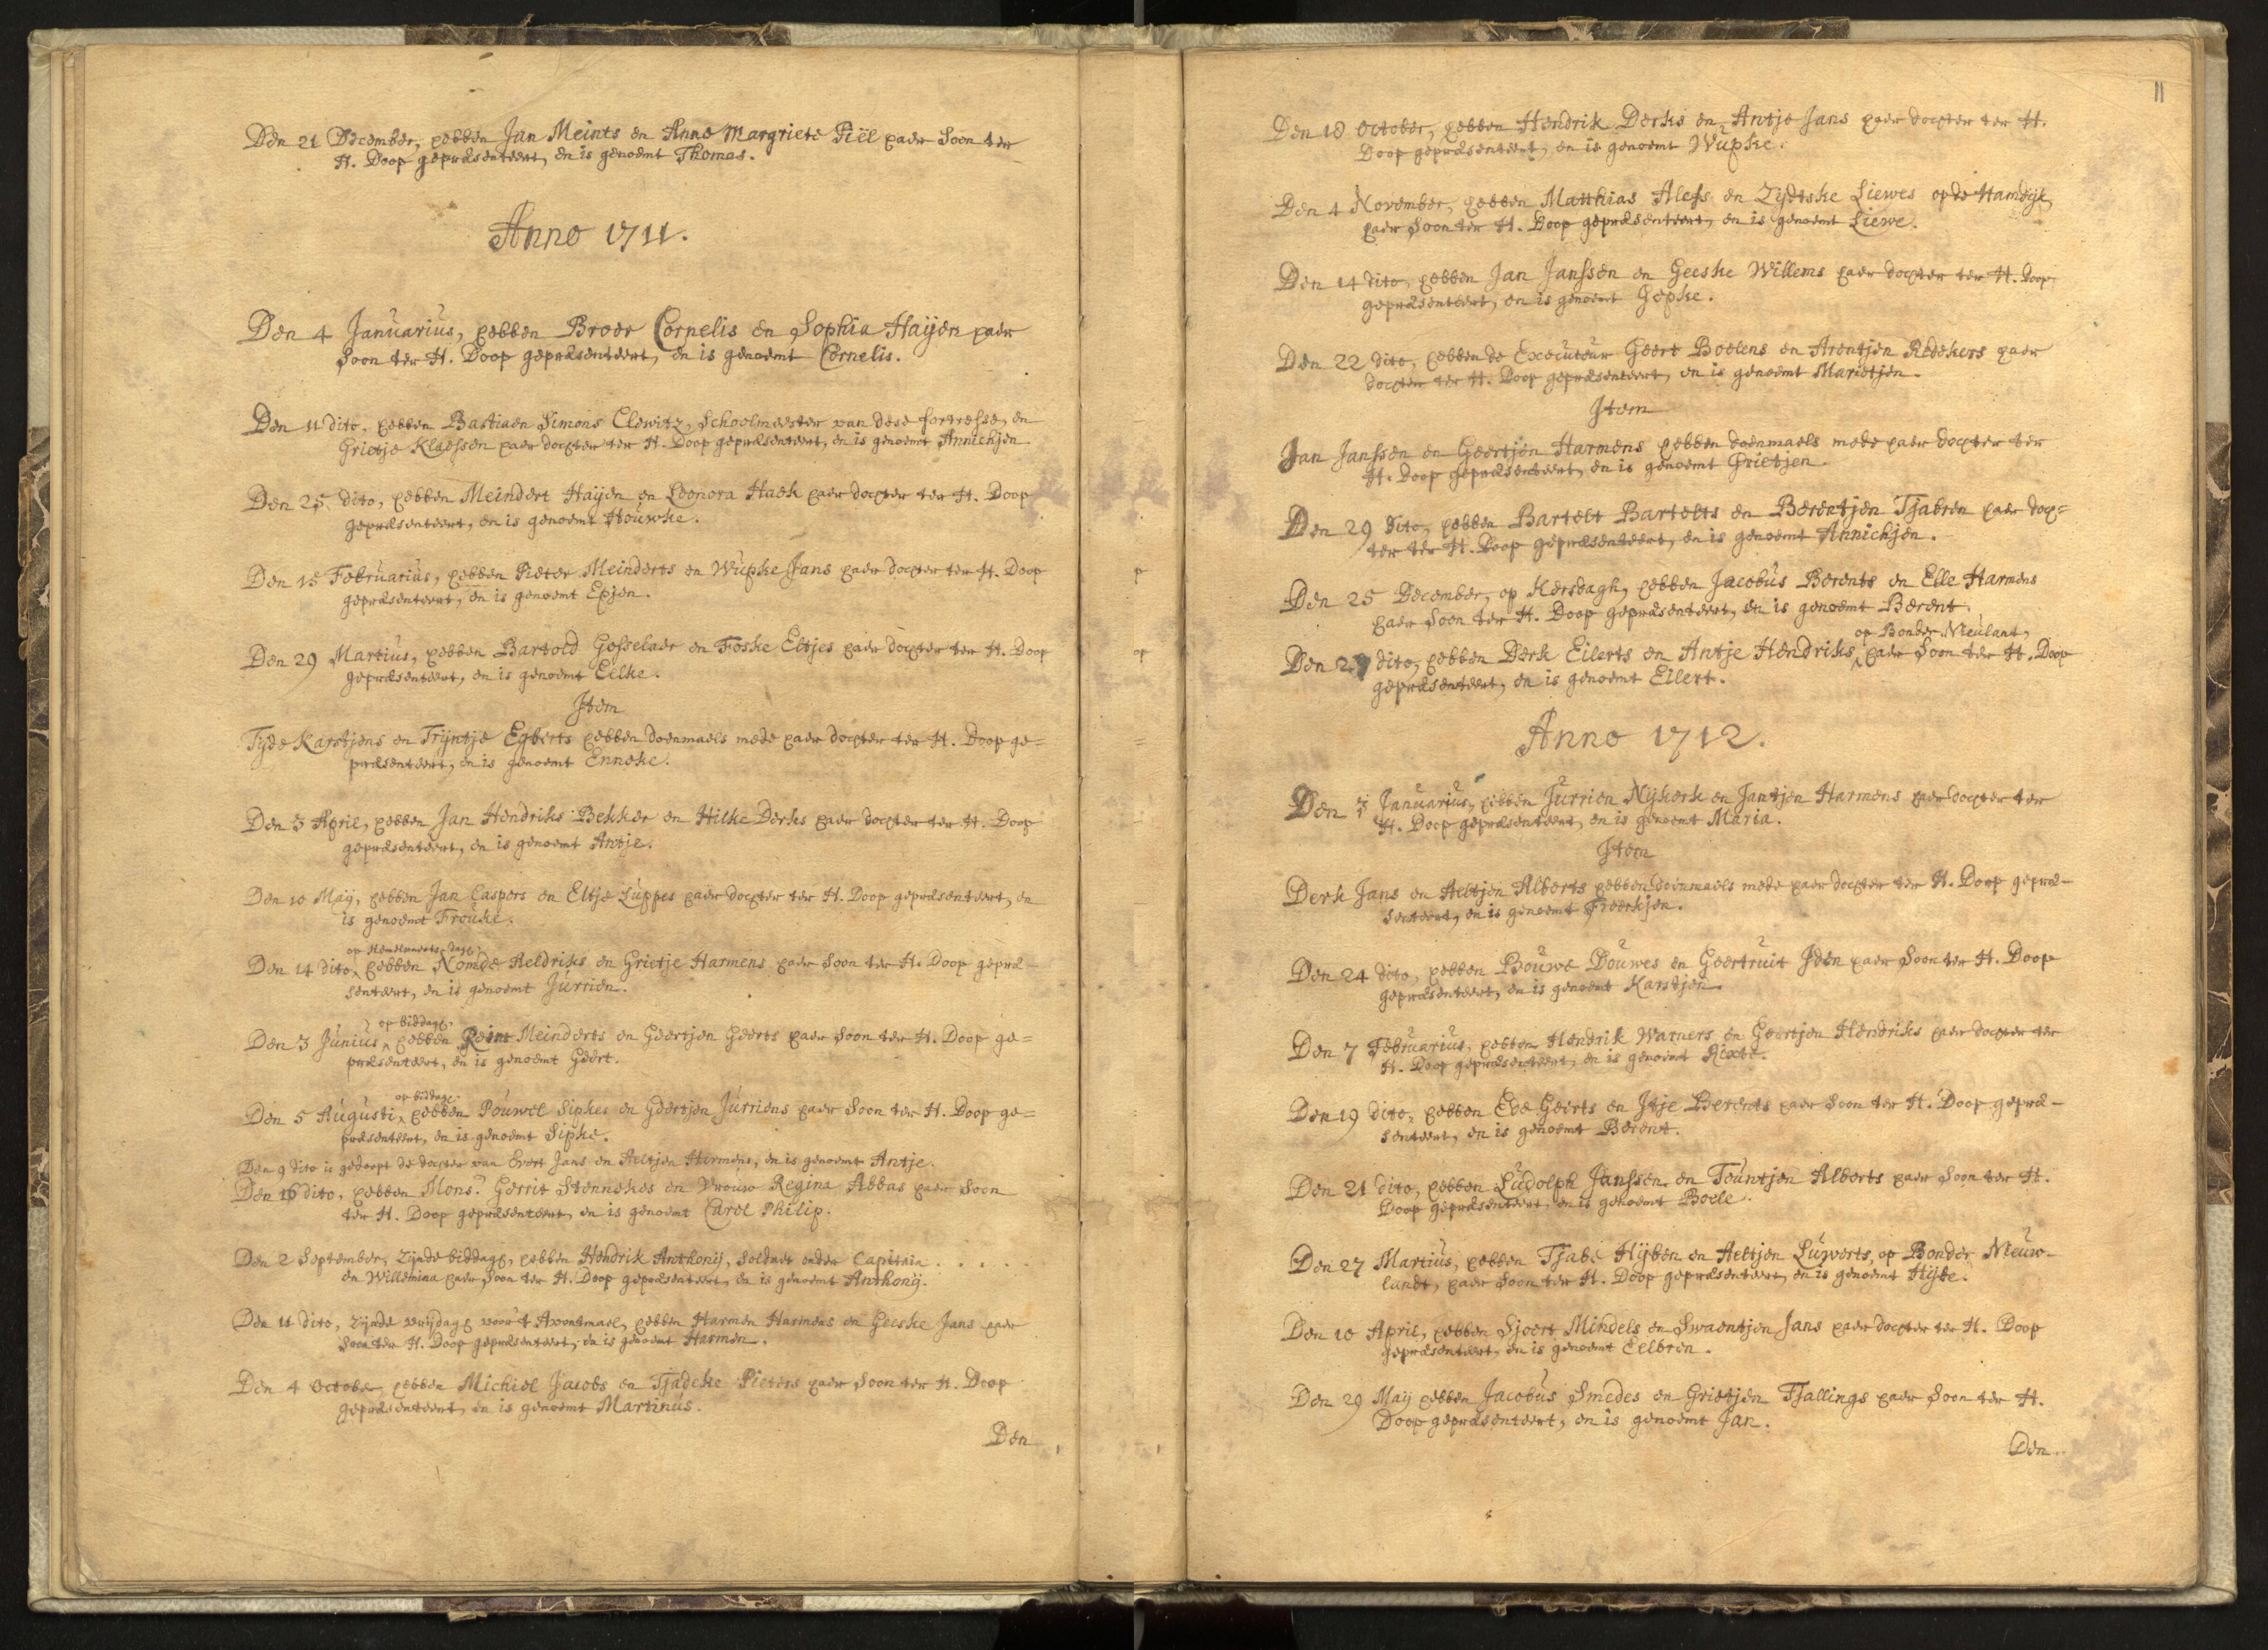 Den 21 December, hebben Jan Meints en Anna Margriete Piël haer Soon ter
H. Doop gepræsenteert, en is genoemt Thomas.
Anno 1711.
Den 4 Januarius, hebben Broer Cornelis en Sophia Haijen haer
Soon ter H. Doop gepræsenteert, en is genoemt Cornelis.
Den 11 dito, hebben Bastiaen Simons Clewitz, Schoolmeester van dese fortresse, en
Grietje Klaessen haer dochter ter H. Doop gepræsenteert, en is genoemt Annichjen
Den 25 dito, hebben Meindert Haijen en Leonora Haek haer dochter ter H. Doop
gepræsenteert, en is genoemt Houwke.
Den 15 Februarius, hebben Pieter Meinderts en Wupke Jans haer dochter ter H. Doop
gepræsenteert, en is genoemt Epjen.
Den 29 Martius, hebben Bartold Gosselaer en Foske Eltjes haer dochter ter H. Doop
gepræsenteert, en is genoemt Eilke.
Item
Tjde Karstjens en Trijntje Egberts hebben doenmaels mede haer dochter ter H. Doop ge=
præsenteert, en is genoemt Enneke.
Den 3 April, hebben Jan Hendriks Bekker en Hilke Derks haer dochter ter H. Doop
gepræsenteert, en is genoemt Antje.
Den 10 Maij, hebben Jan Caspers en Eltje Luppes haer dochter ter H. Doop gepræsenteert, en
is genoemt Frouke.
op Hemelvaerts dagh,
Den 14 dito, hebben Nomde Reldriks en Grietje Harmens haer Soon ter H. Doop gepræ-
senteert, en is genoemt Jurrien.
op biddagh,
Den 3 Junius, hebben Reint Meinderts en Geertjen Geerts haer Soon ter H. Doop ge=
præsenteert, en is genoemt Geert.
op biddagh,
Den 5 Augusti, hebben Pouwel Sipkes en Geertjen Jurriens haer Soon ter H. Doop ge=
præsenteert, en is genoemt Sipke.
Den 9 dito is gedoopt de dochter van Evert Jans en Aeltjen Harmens, en is genoemt Antje.
Den 16 dito, hebben Monsr. Gerrit Stennekes en Vrouw Regina Abbas haer Soon
ter H. Doop gepræsenteert, en is genoemt Carel Philip.
Den 2 September, zijnde biddagh, hebben Hendrik Anthonij, Soldaet onder Capitain . . . . .
en Willemina haer Soon ter H. Doop gepræsenteert, en is genoemt Anthonij.
Den 11 dito, zijnde vrijdagh voor 't Avontmael, hebben Harmen Harmens en Geeske Jans haer
Soon ter H. Doop gepræsenteert, en is genoemt Harmen.
Den 4 October, hebben Michiel Jacobs en Tjadeke Pieters haer Soon ter H. Doop
gepræsenteert, en is genoemt Martinus.
Den
11
Den 18 October, hebben Hendrik Derks en Antje Jans haer dochter ter H.
Doop gepræsenteert, en is genoemt Wupke.
Den 4 November, hebben Matthias Alefs en Zijdtske Liewes op de Hamdijk,
haer Soon ter H. Doop gepræsenteert, en is genoemt Liewe.
Den 14 dito, hebben Jan Janssen en Geeske Willems haer dochter ter H. Doop
gepræsenteert, en is genoemt Gepke.
Den 22 dito, hebben de Executeur Geert Boelens en Arentjen Redekers haer
dochter ter H. Doop gepræsenteert, en is genoemt Marietjen.
Item
Jan Janssen en Geertjen Harmens hebben doenmaels mede haer dochter ter
H. Doop gepræsenteert, en is genoemt Grietjen.
Den 29 dito, hebben Bartelt Bartelts en Berentjen Tjabren haer doch=
ter ter H. Doop gepræsenteert, en is genoemt Annichjen.
Den 25 December, op Kersdagh, hebben Jacobus Berents en Elle Harmens
haer Soon ter H. Doop gepræsenteert, en is genoemt Berent.
op Bonder Nieulant,
Den 27 dito, hebben Derk Eilerts en Antje Hendriks, haer Soon ter H. Doop
gepræsenteert, en is genoemt Eilert.
Anno 1712.
Den 3 Januarius, hebben Jurrien Nijkerk en Jantjen Harmens haer dochter ter
H. Doop gepræsenteert, en is genoemt Maria.
Item
Derk Jans en Aeltjen Alberts hebben doenmaels mede haer dochter ter H. Doop gepræ-
senteert, en is genoemt Freerkjen.
Den 24 dito, hebben Bouwe Douwes en Geertruit Iden haer Soon ter H. Doop
gepræsenteert, en is genoemt Karstjen.
Den 7 Februarius, hebben Hendrik Warners en Geertjen Hendriks haer dochter ter
H. Doop gepræsenteert, en is genoemt Rixte.
Den 19 dito, hebben Ede Geerts en Itje Berents haer Soon ter H. Doop gepræ-
senteert, en is genoemt Berent.
Den 21 dito, hebben Ludolph Janssen en Touwntjen Alberts haer Soon ter H.
Doop gepræsenteert, en is genoemt Boele.
Den 27 Martius, hebben Tjabe Hijben en Aeltjen Luwerts, op Bonder Nieuw-
landt, haer Soon ter H. Doop gepræsenteert, en is genoemt Hijbe.
Den 10 April, hebben Sjoert Mindels en Swaentjen Jans haer dochter ter H. Doop
gepræsenteert, en is genoemt Eelbren.
Den 29 Maij hebben Jacobus Smedes en Grietjen Tjallings haer Soon ter H.
Doop gepræsenteert, en is genoemt Jan.
Den